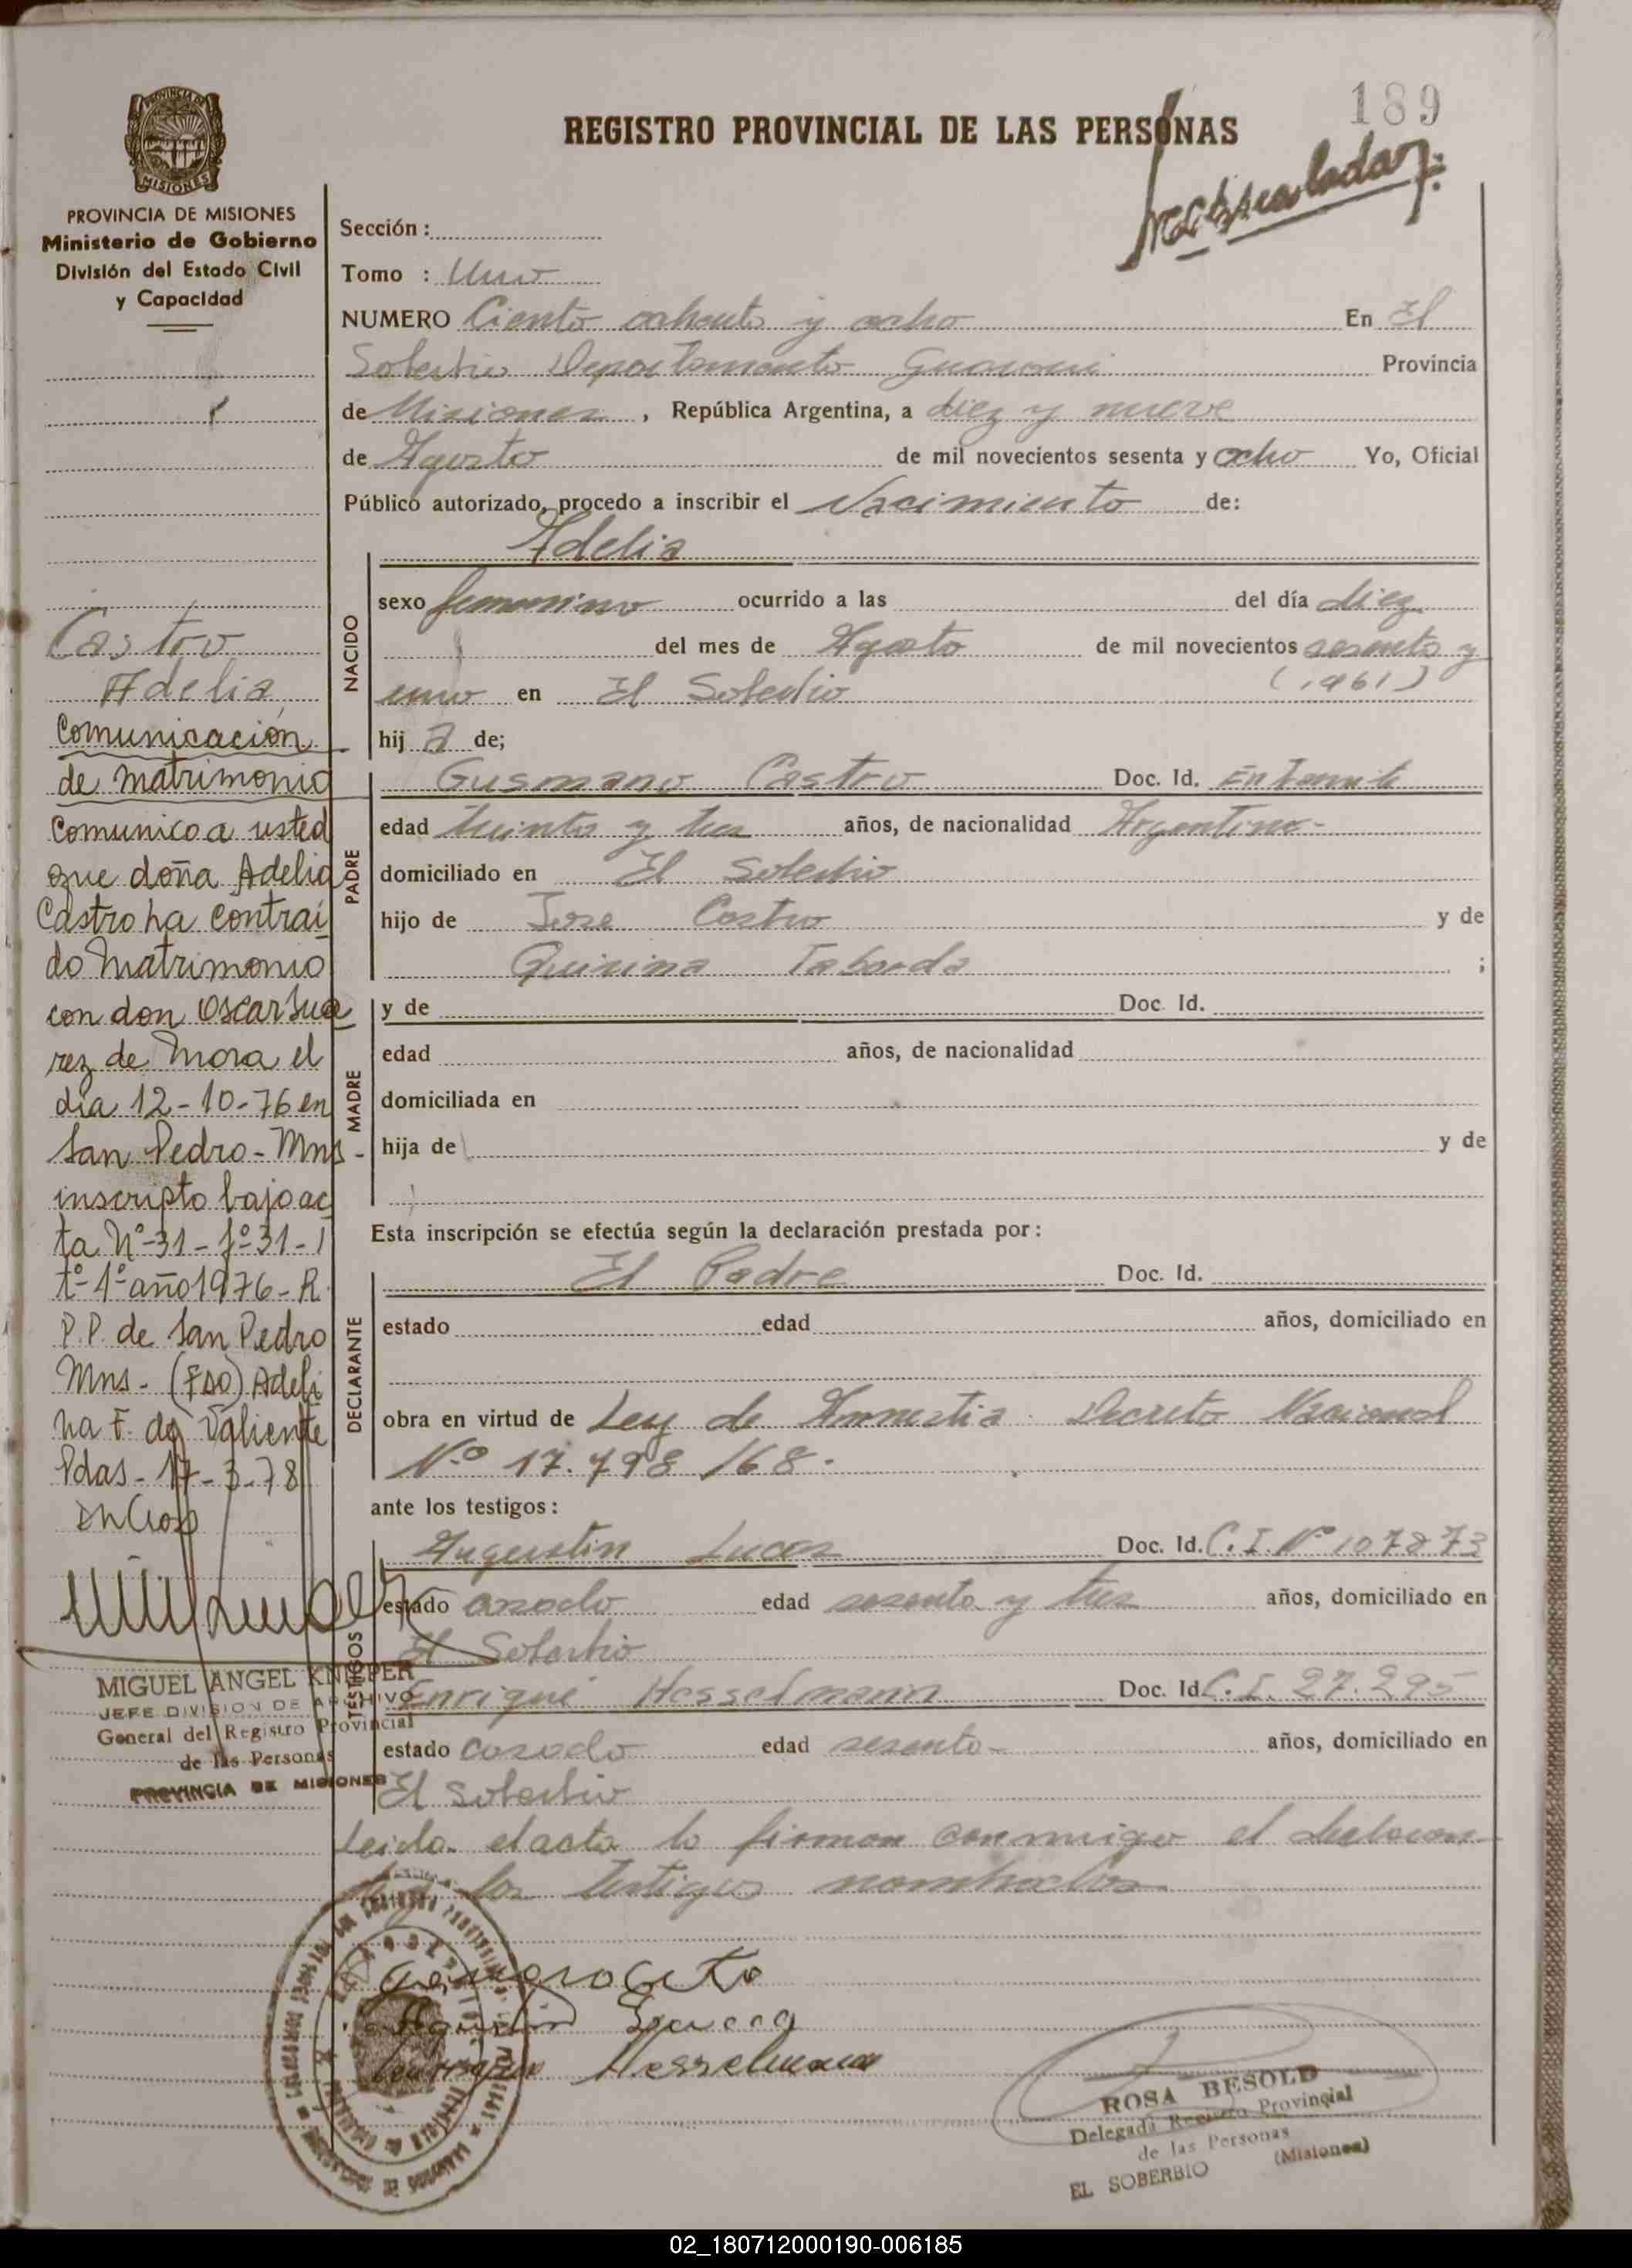 189
REGISTRO PROVINCIAL DE LAS PERSONAS
MISIONES
PROVINCIA DE MISIONES
Ministerio de Gobierno
División del Estado Civil
y Capacidad
Castro
Adelia
Comunicación
de Matrimonio
Comunico a usted
que doña Adelia
Castro ha contraí
do Matrimonio
con don Oscar Sua
rez de Mora el
día 12-10-76 en
San Pedro-Mns-
inscripto bajo ac
ta Nº-31-fº31-
tº-1º año 1976-R.
P.P. de San Pedro
Mns-(FDO) Adeli
na F. de Valiente
Pdas-17-3-78
MIGUEL ANGEL KNIEPER
JEFE DIVISION DE ARCHIVO
General del Registro Provincial
de las Personas
PROVINCIA DE MISIONES
Sección :
Tomo : Uno
NUMERO Ciento ochenta y ocho En El
Soberbio Departamento Guaraní Provincia
de Misiones , República Argentina, a diez y nueve
de Agosto de mil novecientos sesenta y ocho Yo, Oficial
Público autorizado, procedo a inscribir el Nacimiento de:
Adelia
NACIDO
sexo femenino ocurrido a las del día diez
del mes de Agosto de mil novecientos sesenta y
uno en El Soberbio (1961)
hij a de;
PADRE
Gusmano Castro Doc. Id. En tramite
edad treinta y tres años, de nacionalidad Argentino-
domiciliado en El Soberbio
hijo de Jose Castro y de
Quirina Taborda ;
MADRE
y de Doc. Id.
edad años, de nacionalidad
domiciliada en
hija de y de
Esta inscripción se efectúa según la declaración prestada por:
DECLARANTE
El Padre Doc. Id.
estado edad años, domiciliado en
obra en virtud de Ley de Amnistia Decreto Nacional
Nº 17.798/68.
ante los testigos:
TESTIGOS
Augustin Lucas Doc. Id. C.I. Nº 107873
estado casado edad sesenta y tres años, domiciliado en
El Soberbio
Enrique Hesselmann Doc. Id. C.I. 27.295
estado casado edad sesenta- años, domiciliado en
El Soberbio
Leida el acta lo firman conmigo el declaran
los testigos nombrados
Hesselmann
ROSA BESOLD
Delegada Registro Provincial
de las Personas
EL SOBERBIO (Misiones)
02_180712000190-006185